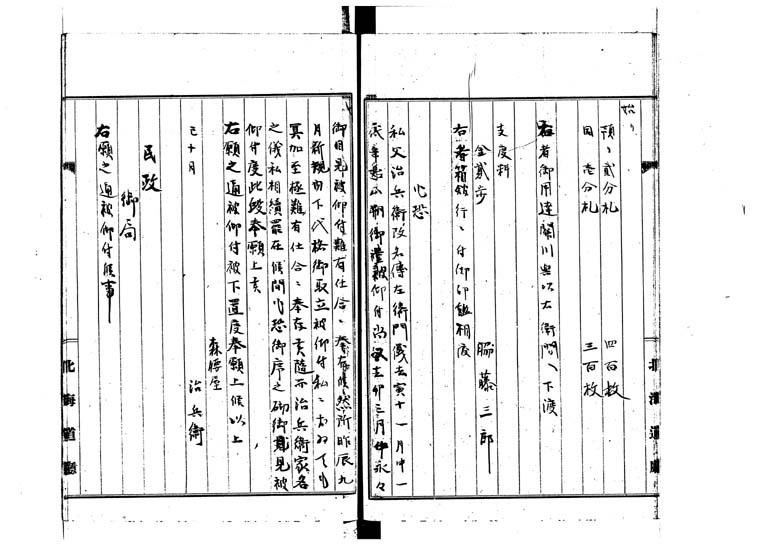 始メ
預メ 貳分札 四百枚
同 壱分札 三百枚
右者御用達関川與以右衛門へ下渡
支度料
金貳歩 脇藤三郎
右者箱館行ニ付御印鑑相渡
乍恐
私父治兵衛改名傳左衛門儀去寅十一月中一
御禮被仰付尚又去卯三月中永々
御目見被仰付難有仕合ニ奉存候然所昨辰九
月新規向下代格御取立被仰付私ニ
冥加至極難有仕合ニ奉存 隨而治兵衛家名
之儀私相續罷在候間乍恐御序之砌御目見被
仰付度此段奉願上
右願之通被仰付被下置度奉願上候以上
森腰屋
治兵衛
巳十月
民政
御局
右願之通被仰付候事
北海道廳
北海道廳